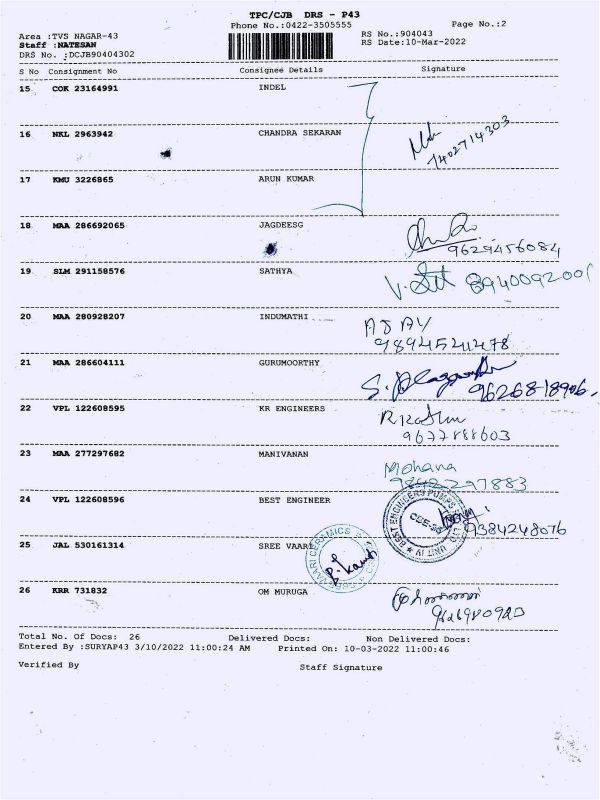 TPC/CJB DRS - P43
Phone No.:0422-3505555 Page No.:2
Area :TVS NAGAR-43 RS No.:904043
Staff :NATESAN RS Date:10-Mar-2022
DRS No. :DCJB90404302
S No Consignment No Consignee Details Signature
15 COK 23164991 INDEL
16 NKL 2963942 CHANDRA SEKARAN
7402714303
17 KMU 3226865 ARUN KUMAR
18 MAA 286692065 JAGDEESG
9629456084
19 SLM 291158576 SATHYA
8940092001
20 MAA 280928207 INDUMATHI AJAY
21 MAA 286604111 GURUMOORTHY
9626818906
22 VPL 122608595 KR ENGINEERS
9677888603
23 MAA 277297682 MANIVANAN Mohana
9842297883
24 VPL 122608596 BEST ENGINEER BEST ENGINEERS PUMPS UNIT IV
9384248076
25 JAL 530161314 SREE VAARI CERAMICS
26 KRR 731832 OM MURUGA
Total No. Of Docs: 26 Delivered Docs: Non Delivered Docs:
Entered By :SURYAP43 3/10/2022 11:00:24 AM Printed On: 10-03-2022 11:00:46
Verified By Staff Signature